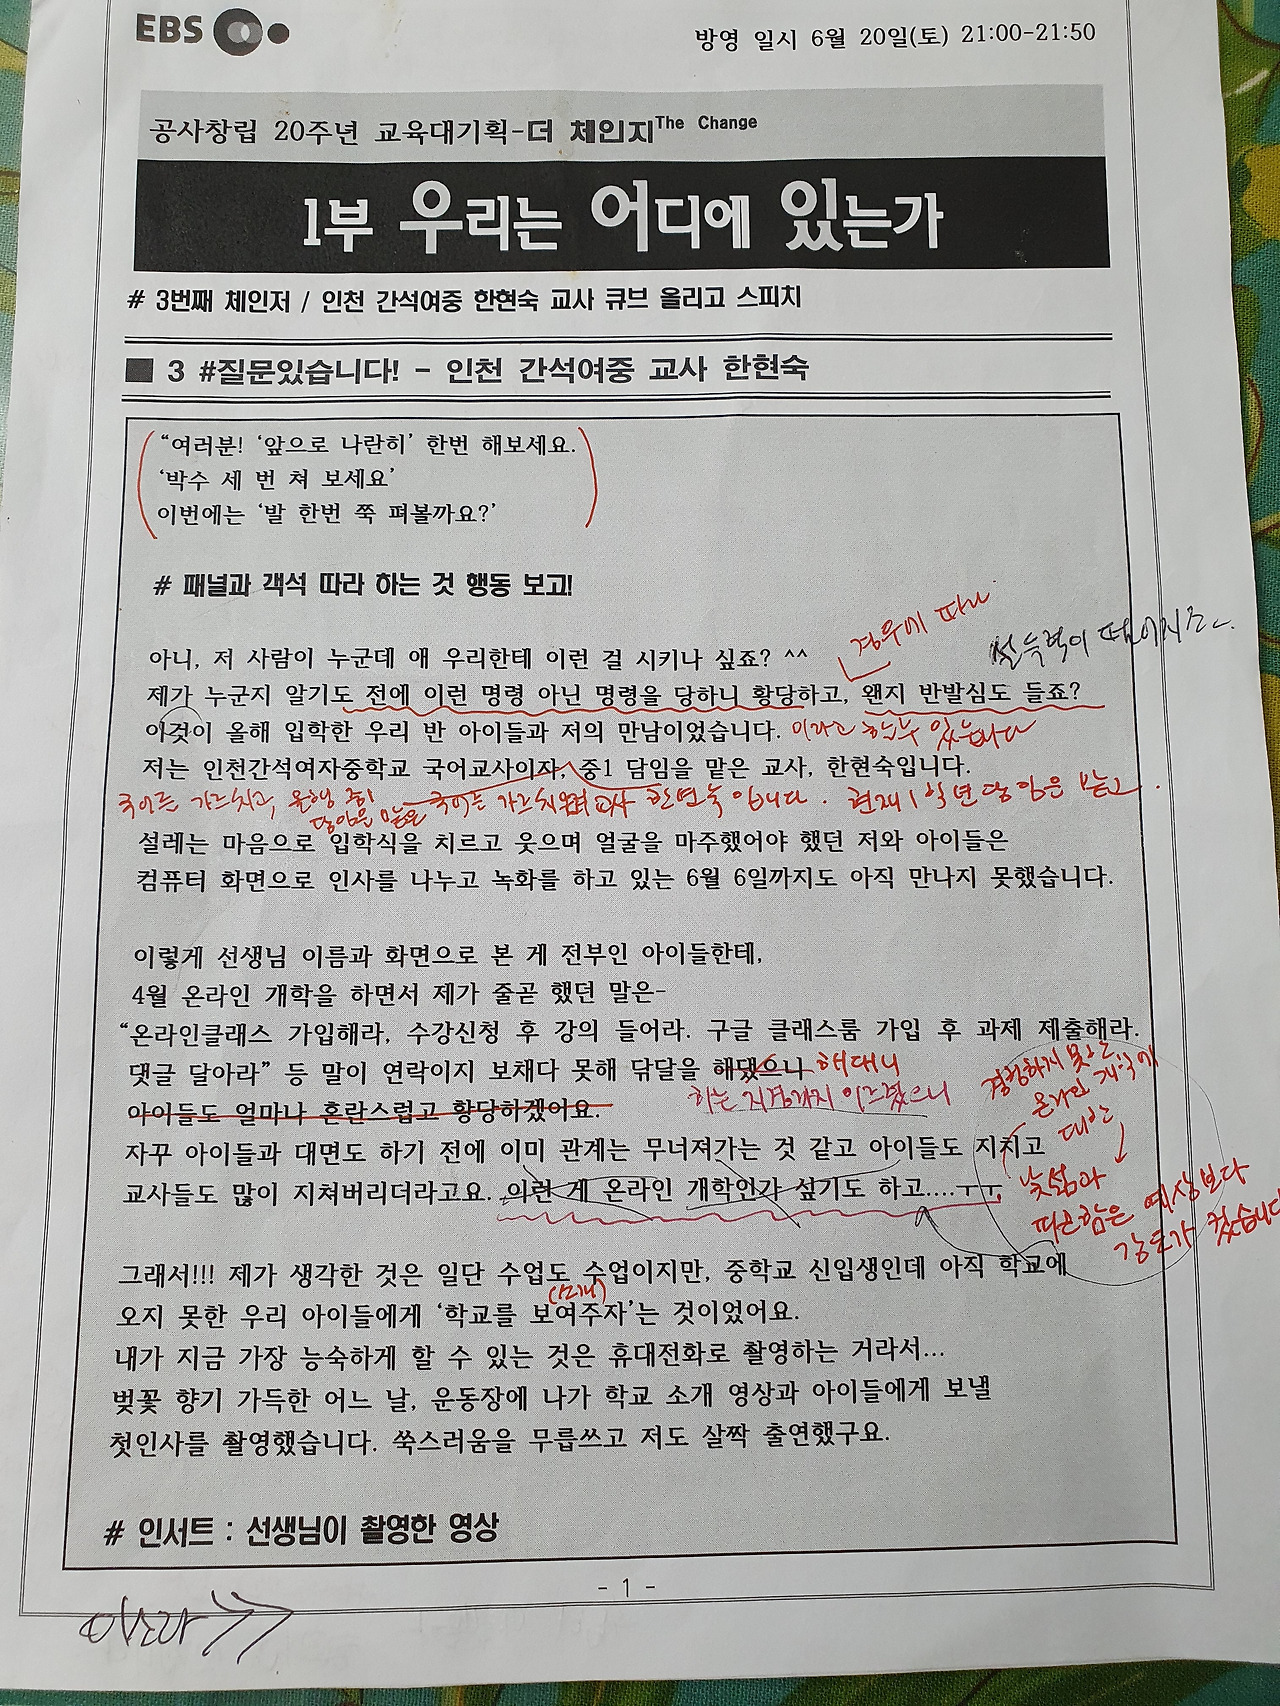 EBS
방영 일시 6월 20일(토) 21:00-21:50
공사창립 20주년 교육대기획-더 체인지The Change
1부 우리는 어디에 있는가
# 3번째 체인저 / 인천 간석여중 한현숙 교사 큐브 올리고 스피치
■ 3 #질문있습니다! - 인천 간석여중 교사 한현숙
“여러분! ‘앞으로 나란히’ 한번 해보세요.
‘박수 세 번 쳐 보세요’
이번에는 ‘발 한번 쭉 펴볼까요?’
# 패널과 객석 따라 하는 것 행동 보고!
경우에 따라
설득력이 떨어지죠~
아니, 저 사람이 누군데 애 우리한테 이런 걸 시키나 싶죠? ^^
제가 누군지 알기도 전에 이런 명령 아닌 명령을 당하니 황당하고, 왠지 반발심도 들죠?
이것이 올해 입학한 우리 반 아이들과 저의 만남이었습니다. 이라고 할 수 있습니다
저는 인천간석여자중학교 국어교사이자, 중1 담임을 맡은 교사, 한현숙입니다.
국어를 가르치고, 올해 중1
담임을 맡은 국어를 가르치며 교사 한현숙입니다. 현재 1학년 담임을 맡고.
설레는 마음으로 입학식을 치르고 웃으며 얼굴을 마주했어야 했던 저와 아이들은
컴퓨터 화면으로 인사를 나누고 녹화를 하고 있는 6월 6일까지도 아직 만나지 못했습니다.
이렇게 선생님 이름과 화면으로 본 게 전부인 아이들한테,
4월 온라인 개학을 하면서 제가 줄곧 했던 말은-
“온라인클래스 가입해라, 수강신청 후 강의 들어라. 구글 클래스룸 가입 후 과제 제출해라.
댓글 달아라” 등 말이 연락이지 보채다 못해 닦달을 해댔으니 해대니
하는 지경까지 이르렀으니
아이들도 얼마나 혼란스럽고 황당하겠어요.
경험하지 못한
온라인 개학에
대한
자꾸 아이들과 대면도 하기 전에 이미 관계는 무너져가는 것 같고 아이들도 지치고
교사들도 많이 지쳐버리더라고요. 이런 게 온라인 개학인가 싶기도 하고....ㅜㅜ
낯섦과
피곤함은 예상보다
강도가 컸습니다
그래서!!! 제가 생각한 것은 일단 수업도 수업이지만, 중학교 신입생인데 아직 학교에
(소개)
오지 못한 우리 아이들에게 ‘학교를 보여주자’는 것이었어요.
내가 지금 가장 능숙하게 할 수 있는 것은 휴대전화로 촬영하는 거라서...
벚꽃 향기 가득한 어느 날, 운동장에 나가 학교 소개 영상과 아이들에게 보낼
첫인사를 촬영했습니다. 쑥스러움을 무릅쓰고 저도 살짝 출연했구요.
# 인서트 : 선생님이 촬영한 영상
- 1 -